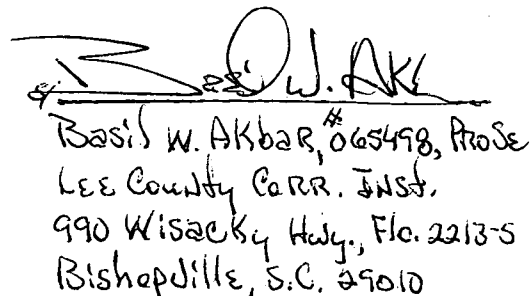 s/ Basil W. Akb
Basil W. AKbaR, #065498, ProSe
LEE County CoRR. Inst.
990 Wisacky Hwy., Flo. 2213-S
Bishopville, S.C. 29010